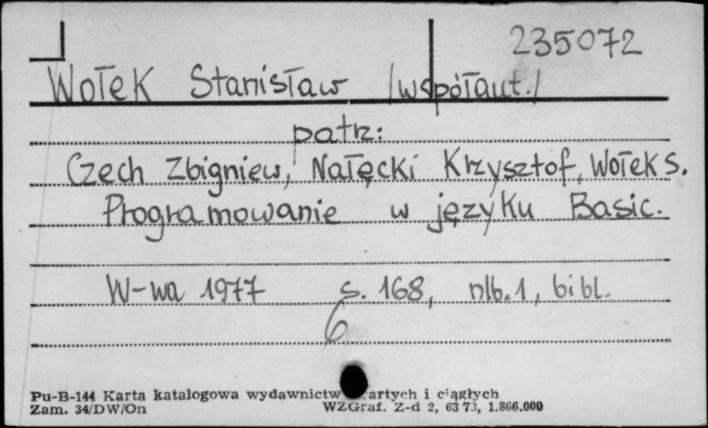 235072
Wołek Stanisław /współaut./
patrz:
Czech Zbigniew, Nałęcki Krzysztof, Wołek S.
Programowanie w języku Basic.
W-wa 1977 s. 168, nlb. 1, bibl.
6
Pu-B-144 Karta katalogowa wydawnictw artych i ciągłych
Zam. 34/DW/On WZGraf. Z-d 2, 63 73, 1.866.000